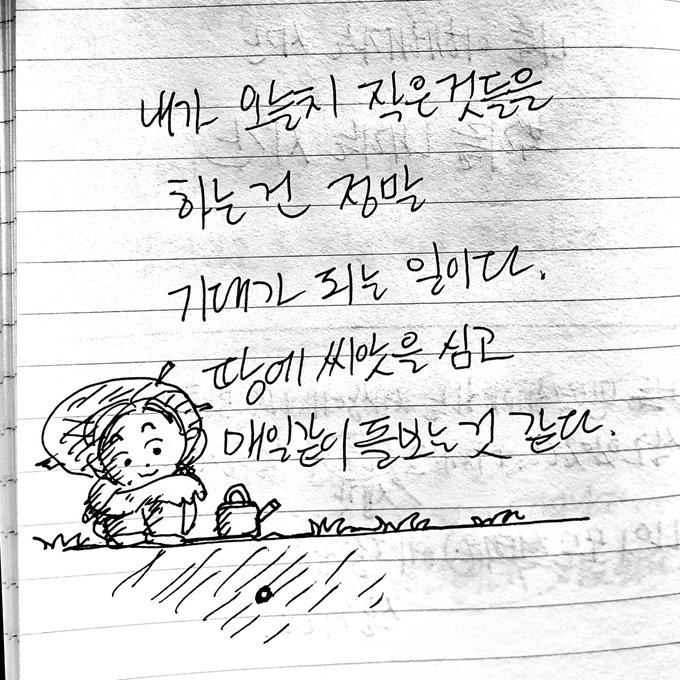 내가 오늘치 작은것들을
하는건 정말
기대가 되는 일이다.
땅에 씨앗을 심고
매일같이 돌보는것 같다.